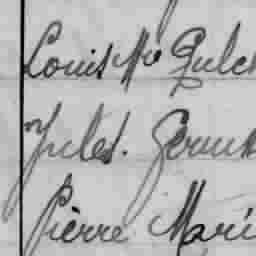 Louis Mie Pulch
Jules. Geruk
Pierre Mari